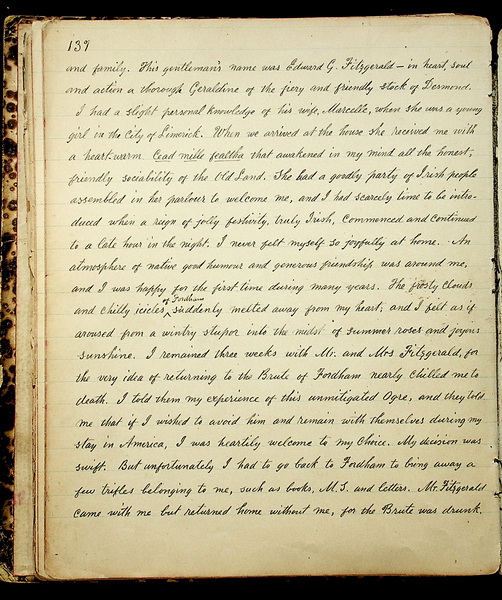 139
and family. This gentleman's name was Edward G. Fitzgerald — in heart, soul
and action a thorough Geraldine of the fiery and friendly stock of Desmond.
I had a slight personal knowledge of his wife, Marcelle, when she was a young
girl in the City of Limerick. When we arrived at the house she received me with
a heart-warm Cead mille fealtha that awakened in my mind all the honest,
friendly sociability of the Old Land. She had a goodly party of Irish people
assembled in her parlour to welcome me, and I had scarcely time to be intro-
duced when a reign of jolly festivity, truly Irish, commenced and continued
to a late hour in the night. I never felt myself so joyfully at home. An
atmosphere of native good humour and generous friendship was around me,
and I was happy for the first time during many years. The frosty clouds
of Fordham
and chilly icicles, suddenly melted away from my heart; and I felt as if
aroused from a wintry stupor into the midst of summer roses and joyous
sunshine. I remained three weeks with Mr. and Mrs Fitzgerald, for
the very idea of returning to the Brute of Fordham nearly chilled me to
death. I told them my experience of this unmitigated Ogre, and they told
me that if I wished to avoid him and remain with themselves during my
stay in America, I was heartily welcome to my choice. My decision was
swift. But unfortunately I had to go back to Fordham to bring away a
few trifles belonging to me, such as books, M.S. and letters. Mr. Fitzgerald
came with me but returned home without me, for the Brute was drunk.